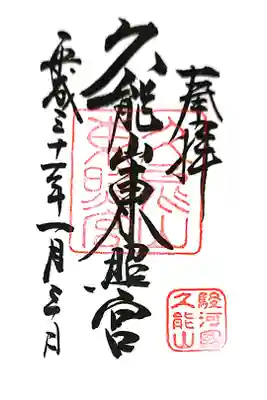 奉拝
久能山東照宮
平成三十一年一月三日
久能山東照宮
駿河国
久能山